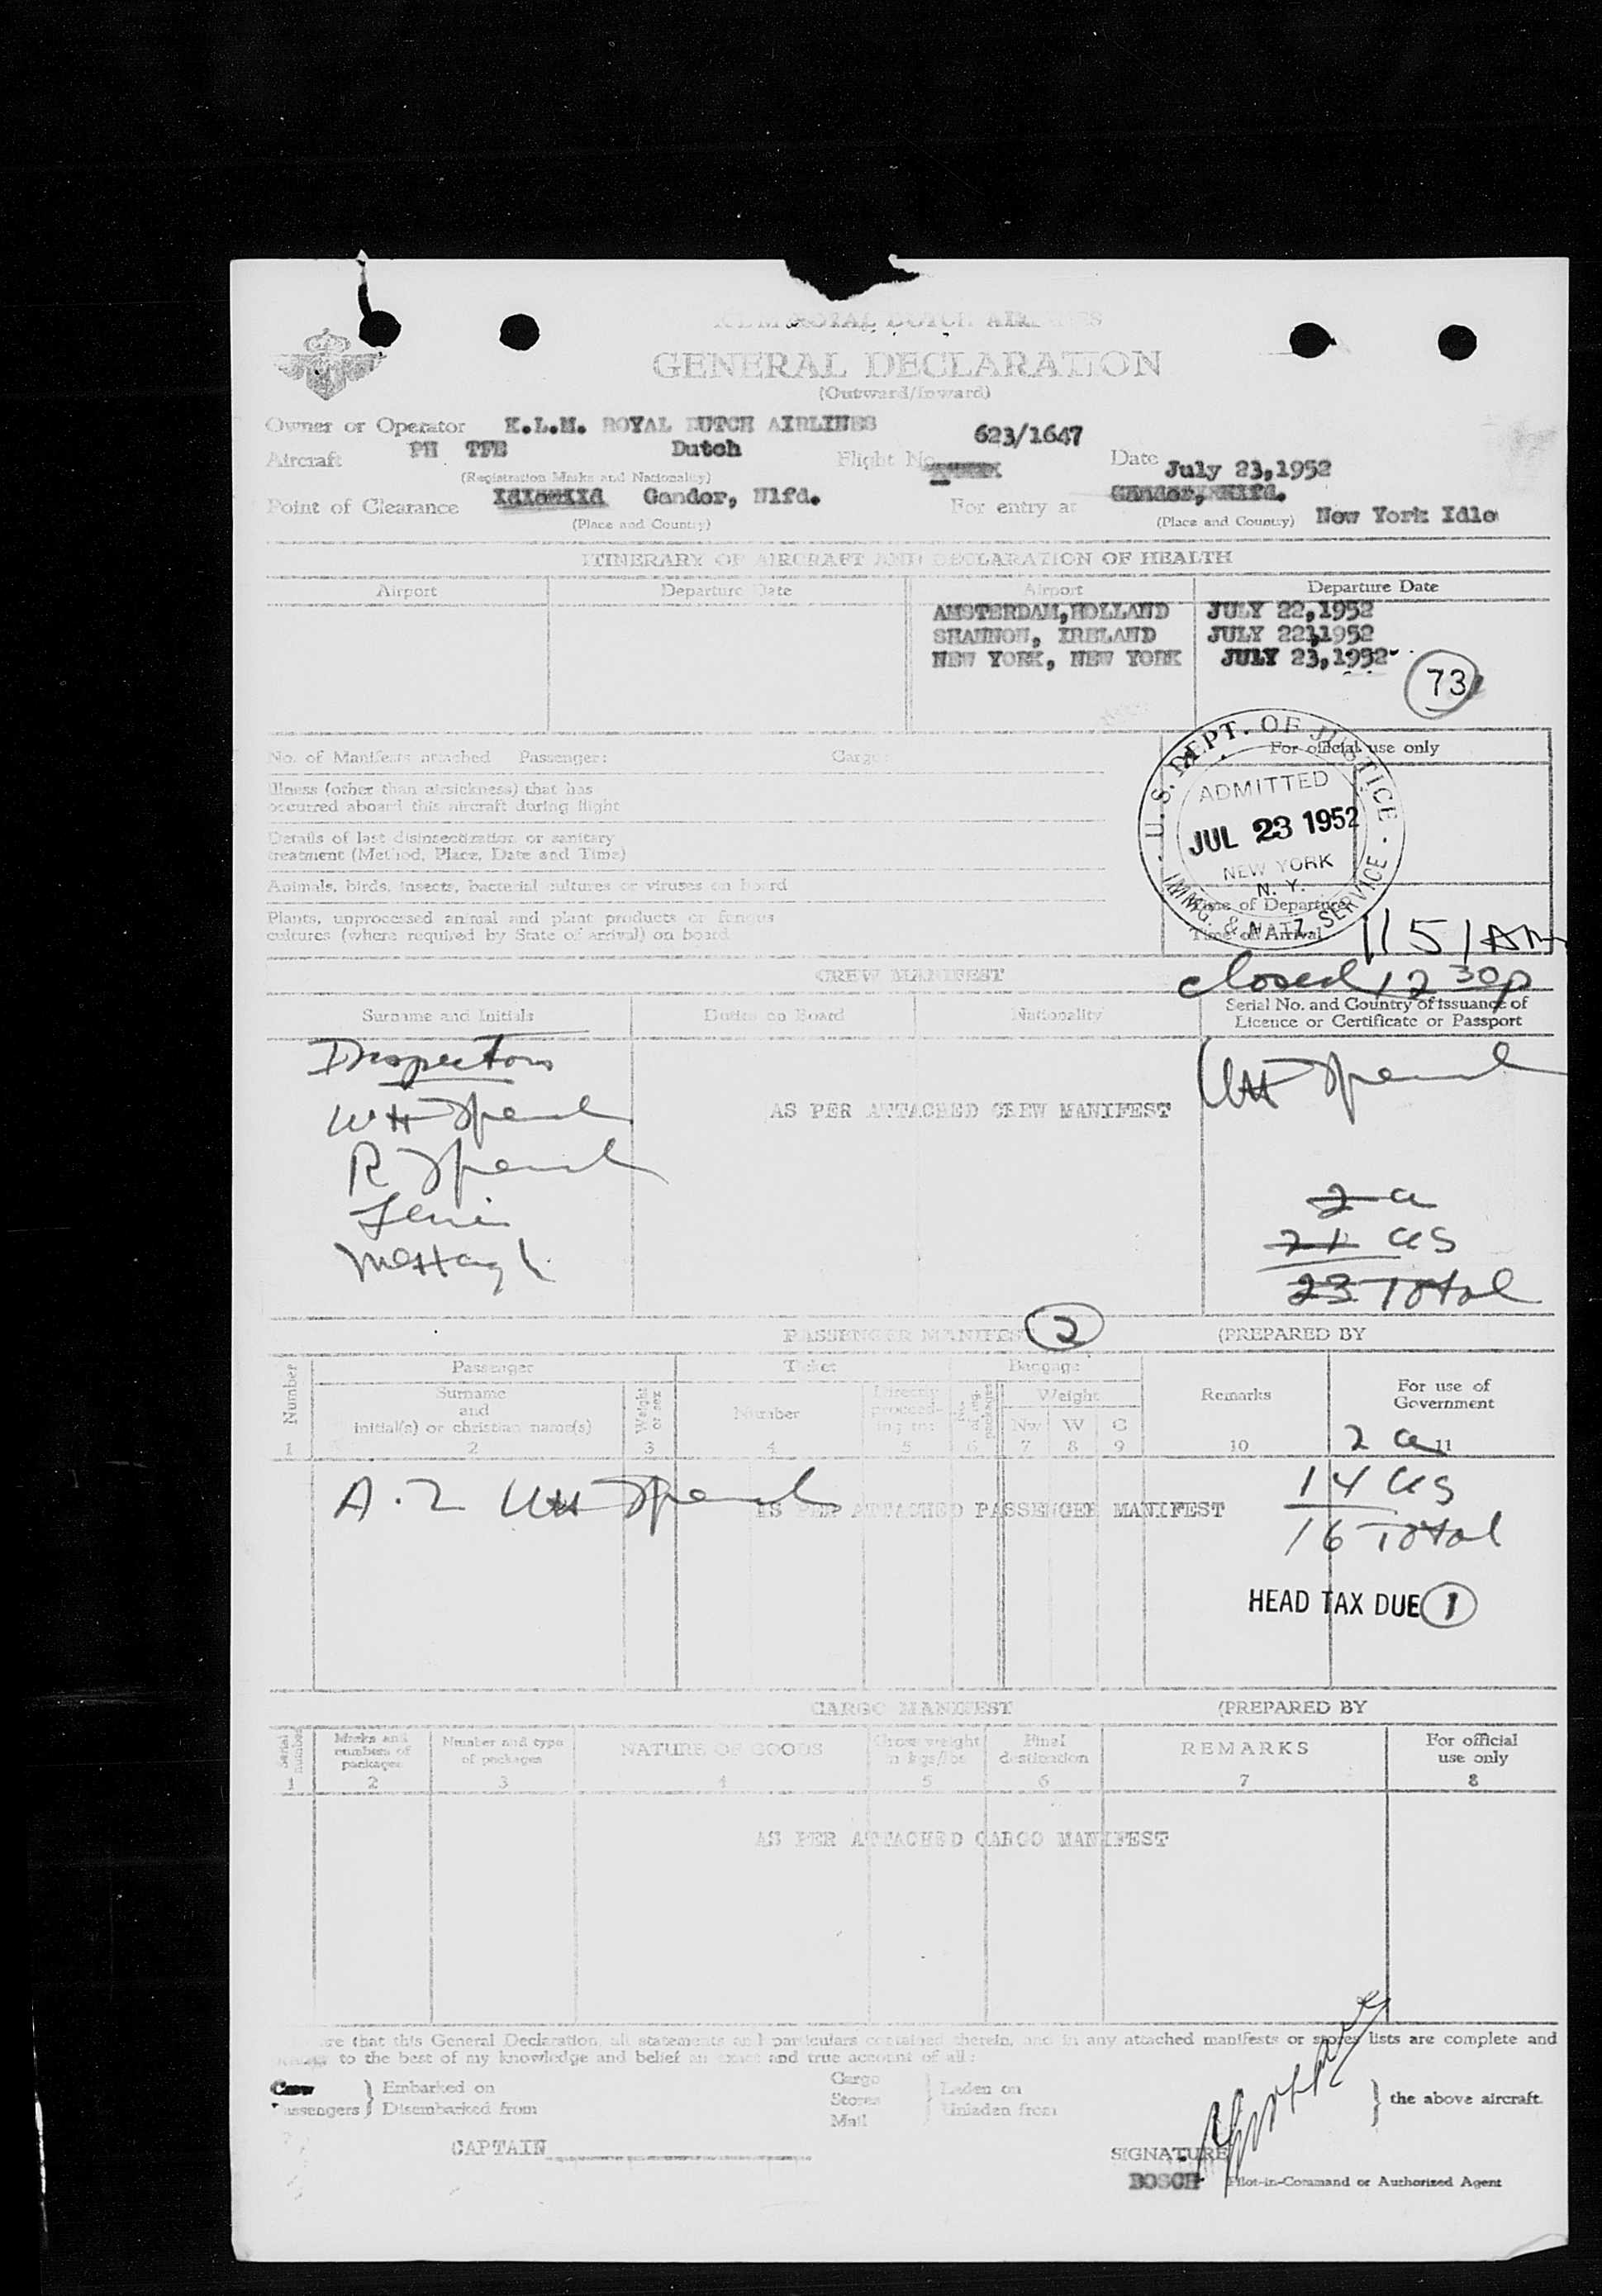 K.L.M. ROYAL DUTCH AIRLINES
GENERAL DECLARATION
(Outward/Inward)
Owner or Operator K.L.M. ROYAL DUTCH AIRLINES 623/1647
Aircraft PH TFE Dutch Flight No. Date July 23,1952
(Registration Marks and Nationality)
Point of Clearance Gander, Nlfd. For entry at Gander, Nlfd. New York Idle
(Place and Country) (Place and Country)
ITINERARY OF AIRCRAFT AND DECLARATION OF HEALTH
Airport Departure Date Airport Departure Date
AMSTERDAM,HOLLAND JULY 22,1952
SHANNON, IRELAND JULY 22,1952
NEW YORK, NEW YORK JULY 23,1952
73
No. of Manifests attached Passenger: Cargo: For official use only
U.S. DEPT. OF JUSTICE
ADMITTED
JUL 23 1952
NEW YORK
N. Y.
IMMIG. & NATZ. SERVICE
Illness (other than airsickness) that has
occurred aboard this aircraft during flight
Details of last disinsectization or sanitary
treatment (Method, Place, Date and Time)
Animals, birds, insects, bacterial cultures or viruses on board
Plants, unprocessed animal and plant products or fungus
cultures (where required by State of arrival) on board
Time of Departure
Time of Arrival 1151AM
closed 12 30p
CREW MANIFEST
Surname and Initials Duties on Board Nationality Serial No. and Country of issuance of
Licence or Certificate or Passport
Inspectors
AS PER ATTACHED CREW MANIFEST
2 a
21 US
23 Total
PASSENGER MANIFEST 2 (PREPARED BY
Number Passenger Ticket Baggage Remarks For use of
Government
Surname
and
initial(s) or christian name(s)
Weight or sex Number Directly
proceed-
ing to: No. of ing. packages Weight
Nw W C
1 2 3 4 5 6 7 8 9 10 11
2 a
A.2
AS PER ATTACHED PASSENGER MANIFEST
14 US
16 Total
HEAD TAX DUE 1
CARGO MANIFEST (PREPARED BY
Serial number Marks and
numbers of
packages Number and type
of packages NATURE OF GOODS Gross weight
in kgs/lbs Final
destination REMARKS For official
use only
1 2 3 4 5 6 7 8
AS PER ATTACHED CARGO MANIFEST
that this General Declaration, all statements and particulars contained therein, and in any attached manifests or stores lists are complete and
to the best of my knowledge and belief an exact and true account of all:
Crew
Passengers } Embarked on
Disembarked from Cargo
Stores
Mail } Laden on
Unladen from } the above aircraft.
CAPTAIN
SIGNATURE
BOSCH Pilot-in-Command or Authorized Agent